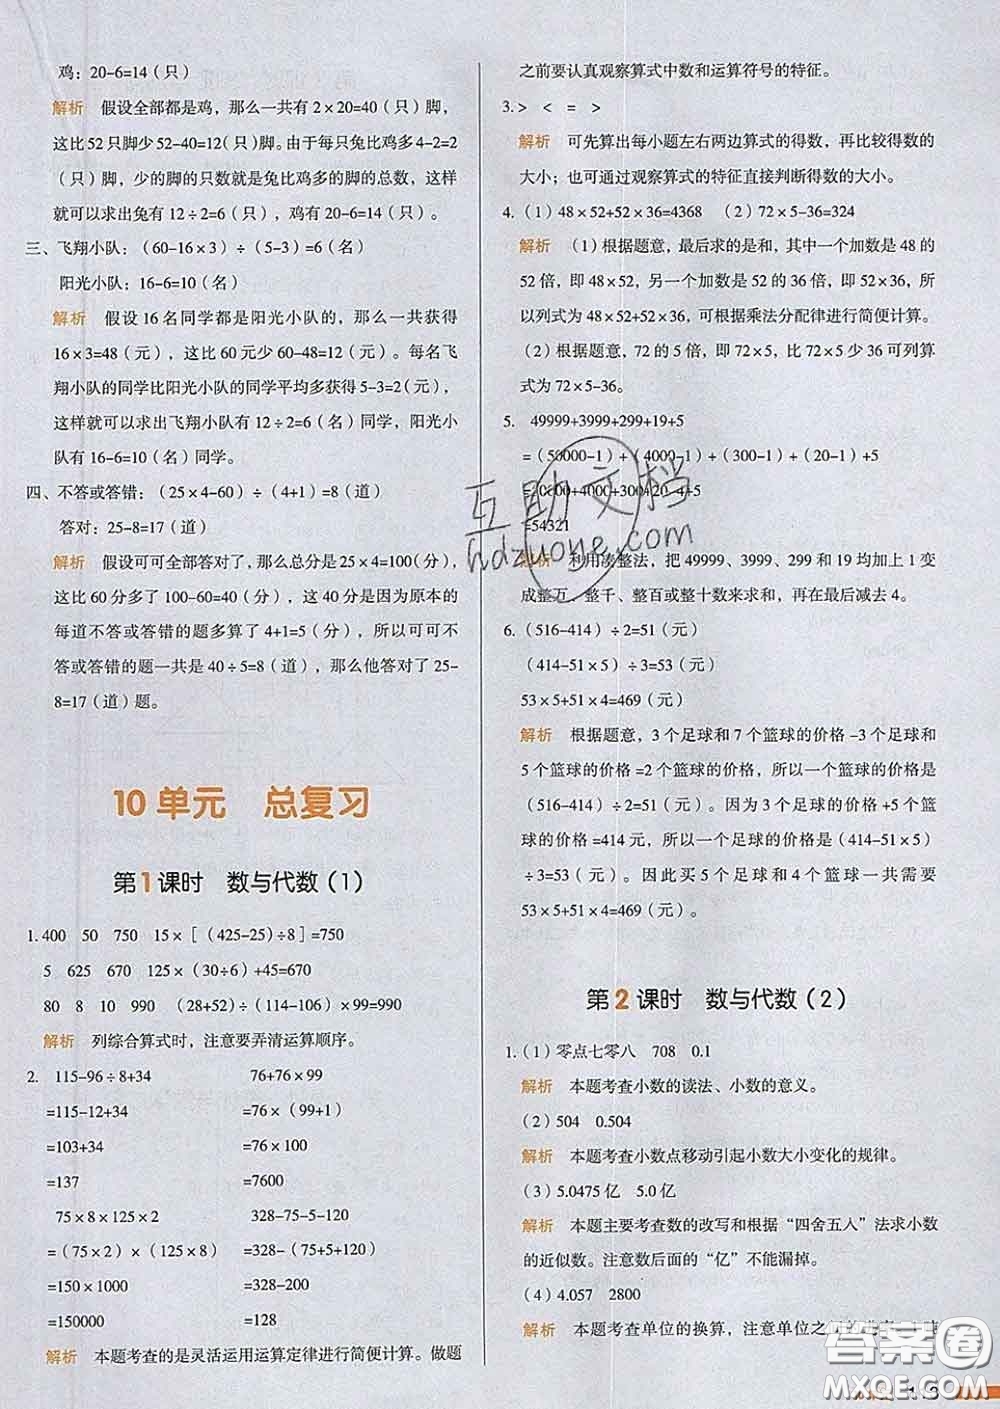 鸡：20-6=14（只）
解析 假设全部都是鸡，那么一共有 2×20=40（只）脚，
这比 52 只脚少 52-40=12（只）脚。由于每只兔比鸡多 4-2=2
（只）脚，少的脚的只数就是兔比鸡多的脚的总数，这样
就可以求出兔有 12÷2=6（只），鸡有 20-6=14（只）。
三、飞翔小队：（60-16×3）÷（5-3）=6（名）
阳光小队：16-6=10（名）
解析 假设 16 名同学都是阳光小队的，那么一共获得
16×3=48（元），这比 60 元少 60-48=12（元）。每名飞
翔小队的同学比阳光小队的同学平均多获得 5-3=2（元），
这样就可以求出飞翔小队有 12÷2=6（名）同学，阳光小
队有 16-6=10（名）同学。
四、不答或答错：（25×4-60）÷（4+1）=8（道）
答对：25-8=17（道）
解析 假设可可全部答对了，那么总分是 25×4=100（分），
这比 60 分多了 100-60=40（分），这 40 分是因为原本的
每道不答或答错的题多算了 4+1=5（分），所以可可不
答或答错的题一共是 40÷5=8（道），那么他答对了 25-
8=17（道）题。
10 单元 总复习
第 1 课时 数与代数（1）
1. 400 50 750 15×［（425-25）÷8］=750
5 625 670 125×（30÷6）+45=670
80 8 10 990 （28+52）÷（114-106）×99=990
解析 列综合算式时，注意要弄清运算顺序。
2. 115-96÷8+34 76+76×99
=115-12+34 =76×（99+1）
=103+34 =76×100
=137 =7600
75×8×125×2 328-75-5-120
=（75×2）×（125×8） =328-（75+5+120）
=150×1000 =328-200
=150000 =128
解析 本题考查的是灵活运用运算定律进行简便计算。做题
之前要认真观察算式中数和运算符号的特征。
3. > < = >
解析 可先算出每小题左右两边算式的得数，再比较得数的
大小；也可通过观察算式的特征直接判断得数的大小。
4.（1）48×52+52×36=4368 （2）72×5-36=324
解析 （1）根据题意，最后求的是和，其中一个加数是 48 的
52 倍，即 48×52，另一个加数是 52 的 36 倍，即 52×36，所
以列式为 48×52+52×36，可根据乘法分配律进行简便计算。
（2）根据题意，72 的 5 倍，即 72×5，比 72×5 少 36 可列算
式为 72×5-36。
5. 49999+3999+299+19+5
=（50000-1）+（4000-1）+（300-1）+（20-1）+5
=50000+4000+300+20-4+5
=54321
解析 利用凑整法，把 49999、3999、299 和 19 均加上 1 变
成整万、整千、整百或整十数来求和，再在最后减去 4。
6.（516-414）÷2=51（元）
（414-51×5）÷3=53（元）
53×5+51×4=469（元）
解析 根据题意，3 个足球和 7 个篮球的价格 -3 个足球和
5 个篮球的价格 =2 个篮球的价格，所以一个篮球的价格是
（516-414）÷2=51（元）。因为 3 个足球的价格 +5 个篮
球的价格 =414 元，所以一个足球的价格是（414-51×5）
÷3=53（元）。因此买 5 个足球和 4 个篮球一共需要
53×5+51×4=469（元）。
第 2 课时 数与代数（2）
1.（1）零点七零八 708 0.1
解析 本题考查小数的读法、小数的意义。
（2）504 0.504
解析 本题考查小数点移动引起小数大小变化的规律。
（3）5.0475 亿 5.0 亿
解析 本题主要考查数的改写和根据“四舍五入”法求小数
的近似数。注意数后面的“亿”不能漏掉。
（4）4.057 2800
解析 本题考查单位的换算，注意单位之间的
互助文档
hdzuoye.com
答案圈
MXQE.COM